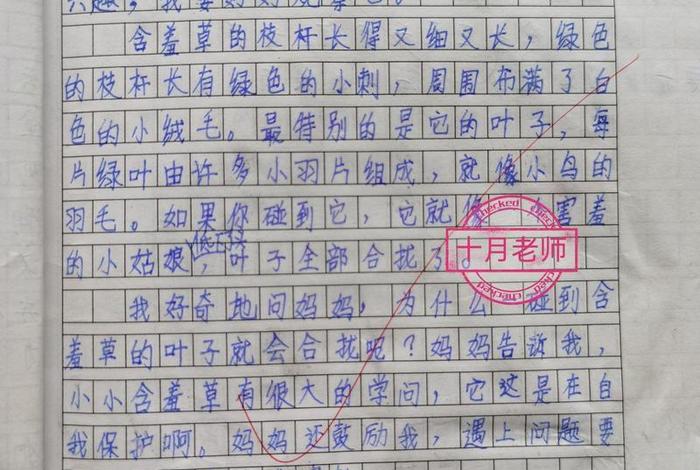 兴趣，我要好好观察它。
含羞草的枝杆长得又细又长，绿色
的枝杆长有绿色的小刺，周围布满了白
色的小绒毛。最特别的是它的叶子，每
片绿叶由许多小羽片组成，就像小鸟的
羽毛。如果你碰到它，它就像 害羞
的小姑娘低下头，叶子全部合找了。
我好奇地问妈妈，为什么 碰到含
羞草的叶子就会合找呢？妈妈告诉我，
小小含羞草有很大的学问，它这是在自
我保护啊。妈妈还鼓励我，遇上问题要
checked
十月老师
checked